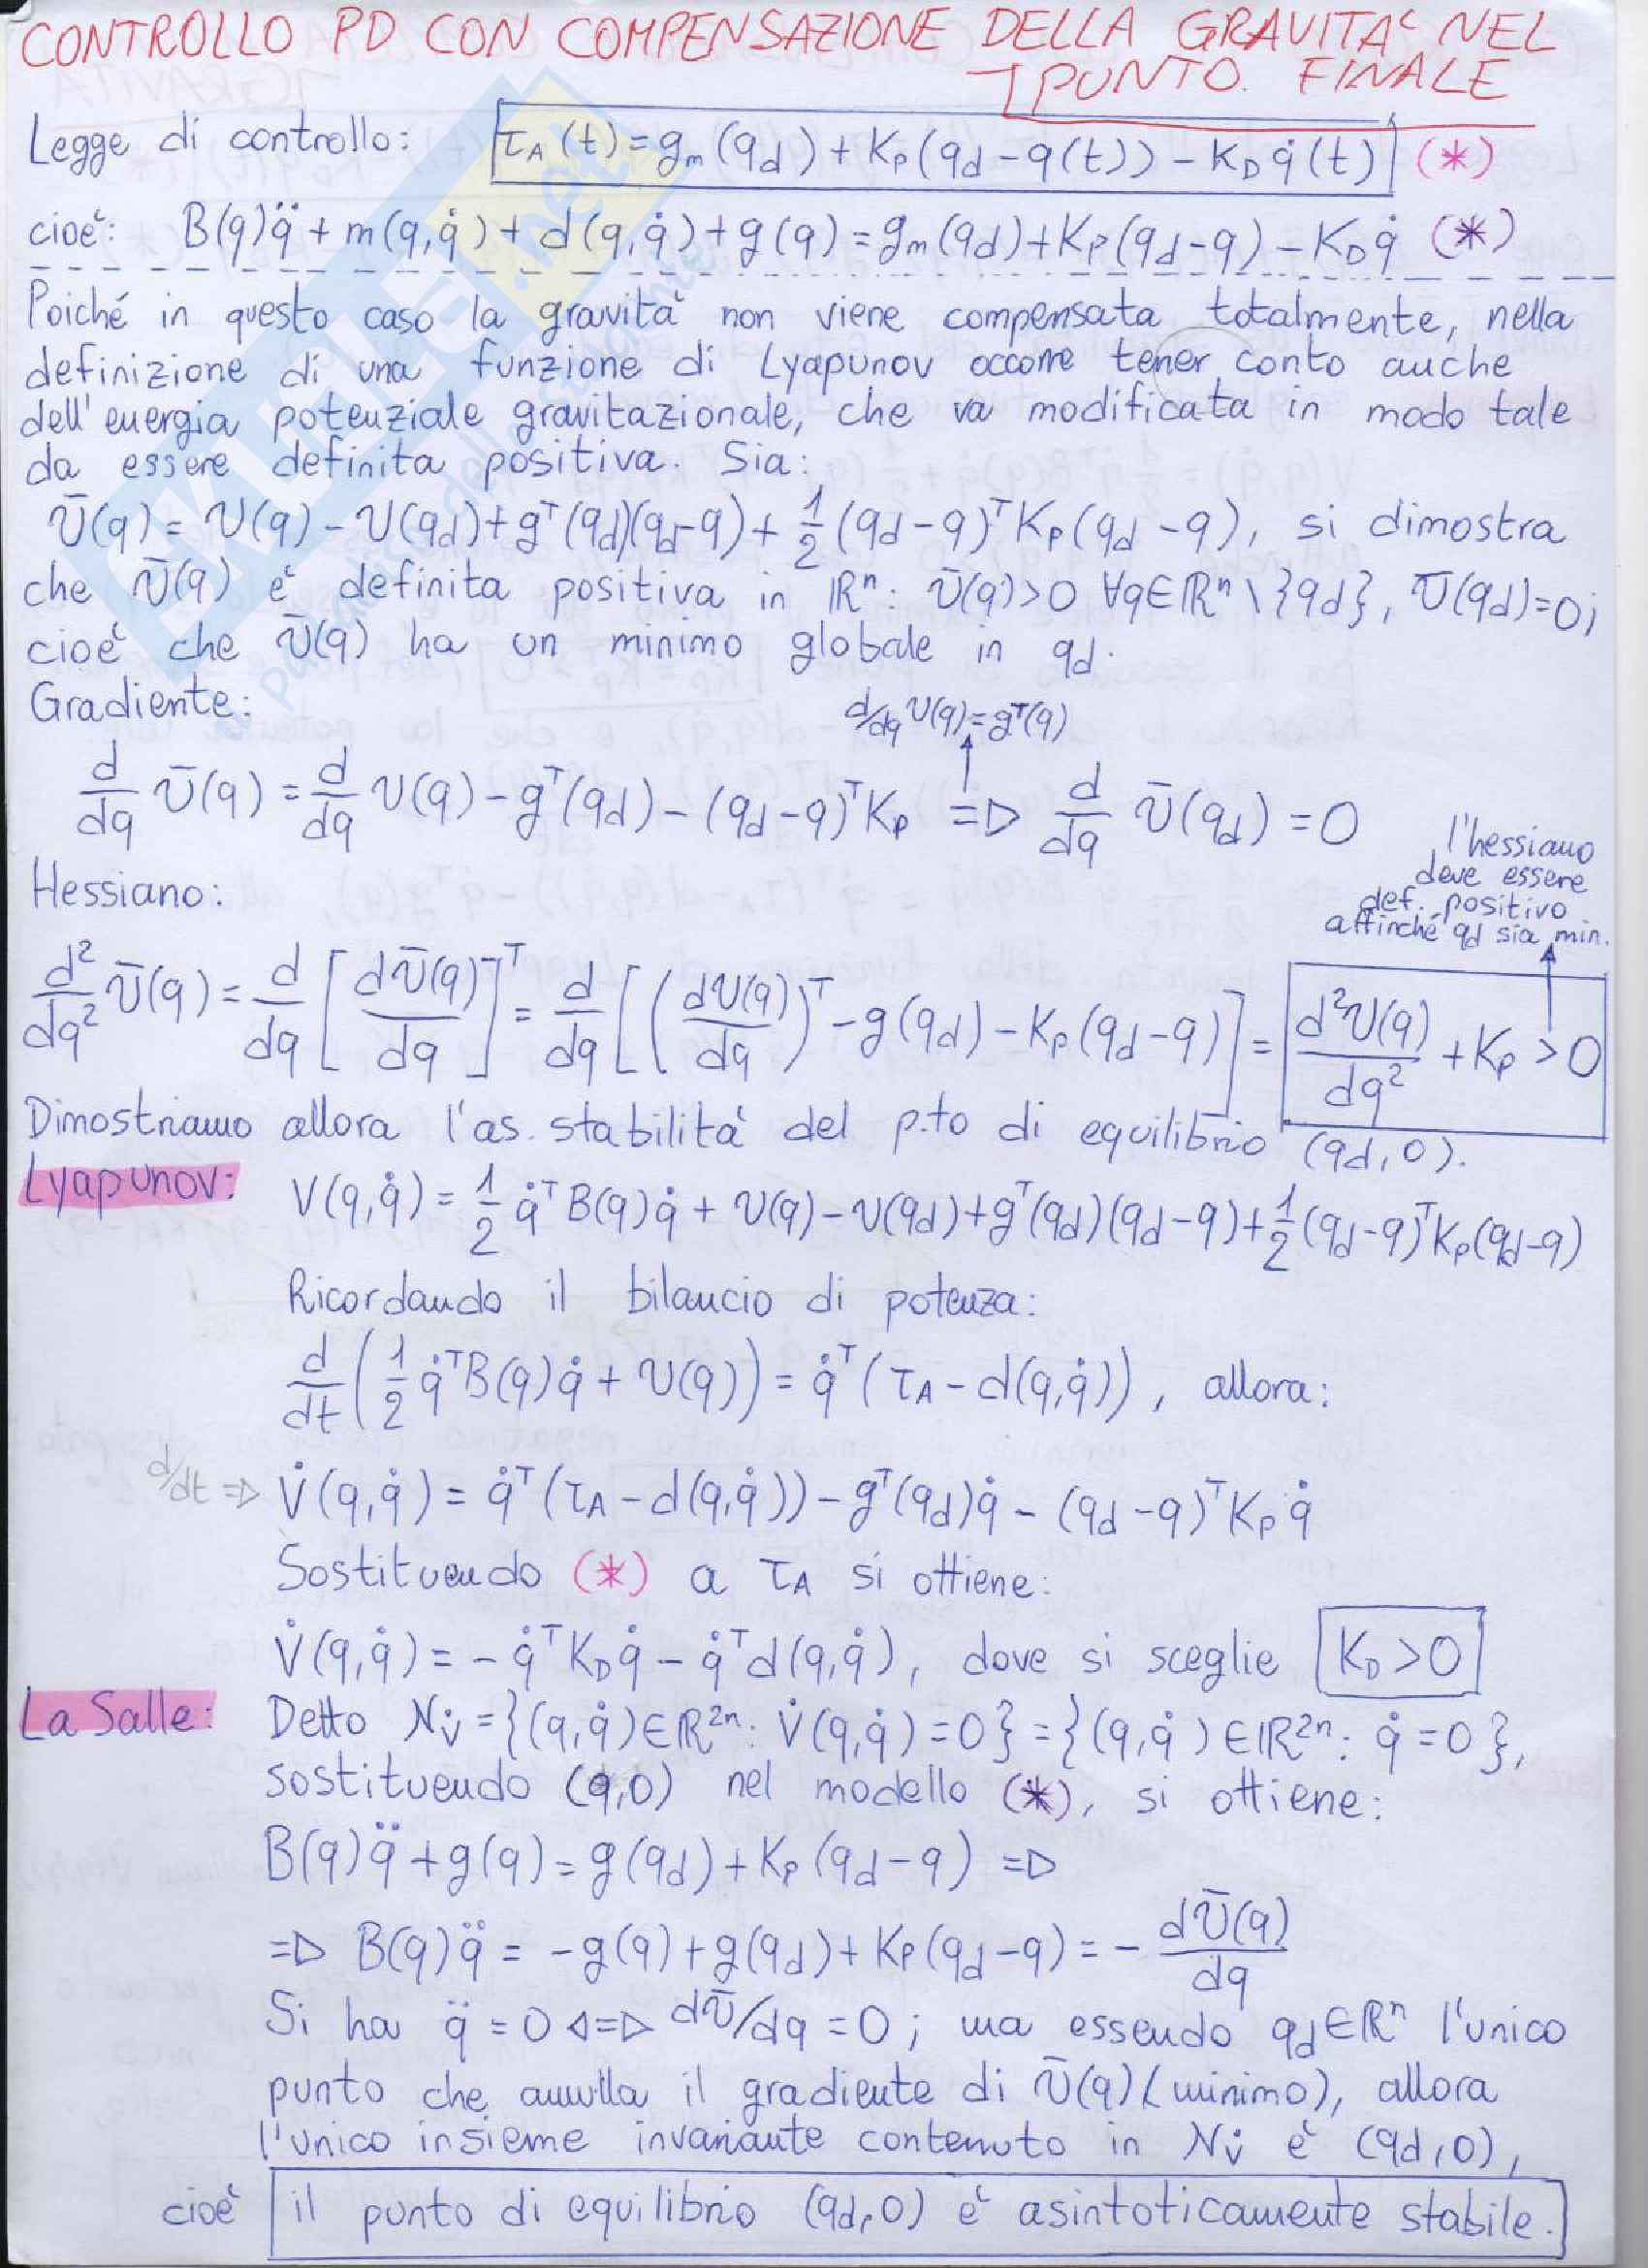 CONTROLLO PD CON COMPENSAZIONE DELLA GRAVITA' NEL
PUNTO FINALE
Legge di controllo: τA(t) = gm(qd) + KP(qd - q(t)) - KD q̇(t) (*)
cioè: B(q)q̈ + m(q,q̇) + d(q,q̇) + g(q) = gm(qd) + KP(qd - q) - KD q̇ (*)
Poiché in questo caso la gravità non viene compensata totalmente, nella
definizione di una funzione di Lyapunov occorre tener conto anche
dell'energia potenziale gravitazionale, che va modificata in modo tale
da essere definita positiva. Sia:
Ū(q) = U(q) - U(qd) + gᵀ(qd)(qd - q) + 1/2 (qd - q)ᵀ KP (qd - q), si dimostra
che Ū(q) è definita positiva in ℝⁿ: Ū(q) > 0 ∀q ∈ ℝⁿ \ {qd}, Ū(qd) = 0;
cioè che Ū(q) ha un minimo globale in qd.
Gradiente:
d/dq U(q) = gᵀ(q)
d/dq Ū(q) = d/dq U(q) - gᵀ(qd) - (qd - q)ᵀ KP => d/dq Ū(qd) = 0
l'hessiano
deve essere
def. positivo
affinché qd sia min.
Hessiano:
d²/dq² Ū(q) = d/dq [dŪ(q)/dq]ᵀ = d/dq [(dU(q)/dq)ᵀ - g(qd) - KP(qd - q)] = d²U(q)/dq² + KP > 0
Dimostriamo allora l'as. stabilità del p.to di equilibrio (qd, 0).
Lyapunov: V(q,q̇) = 1/2 q̇ᵀ B(q) q̇ + U(q) - U(qd) + gᵀ(qd)(qd - q) + 1/2 (qd - q)ᵀ KP (qd - q)
Ricordando il bilancio di potenza:
d/dt (1/2 q̇ᵀ B(q) q̇ + U(q)) = q̇ᵀ (τA - d(q,q̇)), allora:
d/dt => V̇(q,q̇) = q̇ᵀ (τA - d(q,q̇)) - gᵀ(qd) q̇ - (qd - q)ᵀ KP q̇
Sostituendo (*) a τA si ottiene:
V̇(q,q̇) = - q̇ᵀ KD q̇ - q̇ᵀ d(q,q̇), dove si sceglie KD > 0
La Salle: Detto NV̇ = {(q,q̇) ∈ ℝ²ⁿ: V̇(q,q̇) = 0} = {(q,q̇) ∈ ℝ²ⁿ: q̇ = 0},
sostituendo (q,0) nel modello (*), si ottiene:
B(q)q̈ + g(q) = g(qd) + KP(qd - q) =>
=> B(q)q̈ = -g(q) + g(qd) + KP(qd - q) = - dŪ(q)/dq
Si ha q̈ = 0 <=> dŪ/dq = 0; ma essendo qd ∈ ℝⁿ l'unico
punto che annulla il gradiente di Ū(q) (minimo), allora
l'unico insieme invariante contenuto in NV̇ è (qd, 0),
cioè il punto di equilibrio (qd, 0) è asintoticamente stabile.